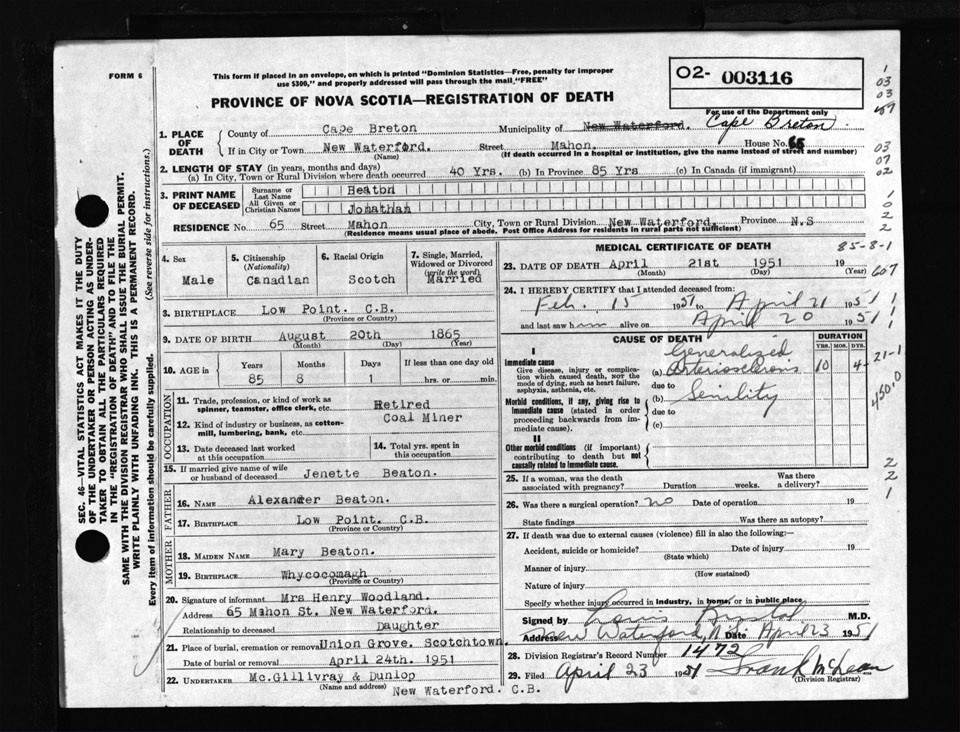 FORM 6
This form if placed in an envelope, on which is printed "Dominion Statistics—Free, penalty for improper
use $300," and properly addressed will pass through the mail, "FREE"
O2- 003116
PROVINCE OF NOVA SCOTIA—REGISTRATION OF DEATH
For use of the Department only
1. PLACE OF DEATH
County of Cape Breton Municipality of New Waterford. Cape Breton
If in City or Town New Waterford. Street Mahon. House No. 65
(Name) (If death occurred in a hospital or institution, give the name instead of street and number)
2. LENGTH OF STAY (in years, months and days)
(a) In City, Town or Rural Division where death occurred 40 Yrs. (b) In Province 85 Yrs (c) In Canada (if immigrant)
3. PRINT NAME OF DECEASED
Surname or Last Name Beaton
All Given or Christian Names Jonathan
RESIDENCE No. 65 Street Mahon City, Town or Rural Division New Waterford. Province N.S
(Residence means usual place of abode. Post Office Address for residents in rural parts not sufficient)
4. Sex
Male
5. Citizenship
(Nationality)
Canadian
6. Racial Origin
Scotch
7. Single, Married, Widowed or Divorced
(write the word)
Married
8. BIRTHPLACE Low Point. C.B.
(Province or Country)
9. DATE OF BIRTH August 20th 1865
(Month) (Day) (Year)
10. AGE in
Years Months Days If less than one day old
85 8 1 hrs. or min.
OCCUPATION
11. Trade, profession, or kind of work as
spinner, teamster, office clerk, etc. Retired
Coal Miner
12. Kind of industry or business, as cotton-
mill, lumbering, bank, etc.
13. Date deceased last worked
at this occupation
14. Total yrs. spent in
this occupation
15. If married give name of wife
or husband of deceased Jenette Beaton.
FATHER
16. NAME Alexander Beaton.
17. BIRTHPLACE Low Point. C.B.
(Province or Country)
MOTHER
18. MAIDEN NAME Mary Beaton.
19. BIRTHPLACE Whycocomagh
(Province or Country)
20. Signature of informant. Mrs Henry Woodland.
Address 65 Mahon St. New Waterford.
Relationship to deceased Daughter
21. Place of burial, cremation or removal Union Grove. Scotchtown
Date of burial or removal April 24th. 1951
22. UNDERTAKER Mc.Gillivray & Dunlop
(Name and address) New Waterford. C.B.
MEDICAL CERTIFICATE OF DEATH
85-8-1
23. DATE OF DEATH April 21st 1951 19
(Month) (Day) (Year)
607
24. I HEREBY CERTIFY that I attended deceased from:
Feb. 15 1951 to April 21 1951
and last saw him alive on April 20 1951
CAUSE OF DEATH
DURATION
YRS. MOS. DYS.
I
Immediate cause
Give disease, injury or complica-
tion which caused death, NOT the
mode of dying, such as heart failure,
asphyxia, asthenia, etc.
Generalized
(a) Arteriosclerosis 10 4
due to
Morbid conditions, if any, giving rise to
immediate cause (stated in order
proceeding backwards from im-
mediate cause).
(b) Senility
due to
(c)
II
Other morbid conditions (if important)
contributing to death but not
causally related to immediate cause.
25. If a woman, was the death
associated with pregnancy? Duration weeks. Was there
a delivery?
26. Was there a surgical operation? no Date of operation 19
State findings Was there an autopsy?
27. If death was due to external causes (violence) fill in also the following:—
Accident, suicide or homicide? Date of injury 19
(State which)
Manner of injury
(How sustained)
Nature of injury
Specify whether injury occurred in industry, in home, or in public place
Signed by M.D.
Address New Waterford, N.S. Date April 23 1951
28. Division Registrar's Record Number 1472
29. Filed April 23 1951 Frank McLean
(Division Registrar)
SEC. 46—VITAL STATISTICS ACT MAKES IT THE DUTY
OF THE UNDERTAKER OR PERSON ACTING AS UNDER-
TAKER TO OBTAIN ALL THE PARTICULARS REQUIRED
IN THE "REGISTRATION OF DEATH" AND TO FILE THE
SAME WITH THE DIVISION REGISTRAR WHO SHALL ISSUE THE BURIAL PERMIT.
WRITE PLAINLY WITH UNFADING INK. THIS IS A PERMANENT RECORD.
Every item of information should be carefully supplied. (See reverse side for instructions.)
1
03
03
03
07
02
1
0
2
2
1
1
1
21-1
450.0
2
2
1